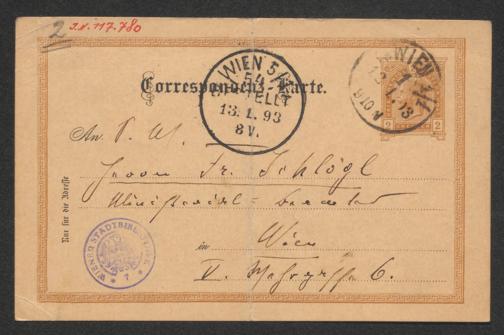 2
I.N. 117.780
Correspondenz-Karte.
WIEN 5/1
54
BESTELLT
13.1.93
8 V.
WIEN
93
2 2
An P. W.
Herrn Fr. Schlögl
Ministerial-Beamter
Nur für die Adresse
in Wien
WIENER STADTBIBLIOTHEK
* 7 *
V. 6.